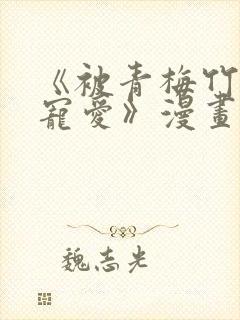 《被青梅竹
寵愛》漫畫
魏志光